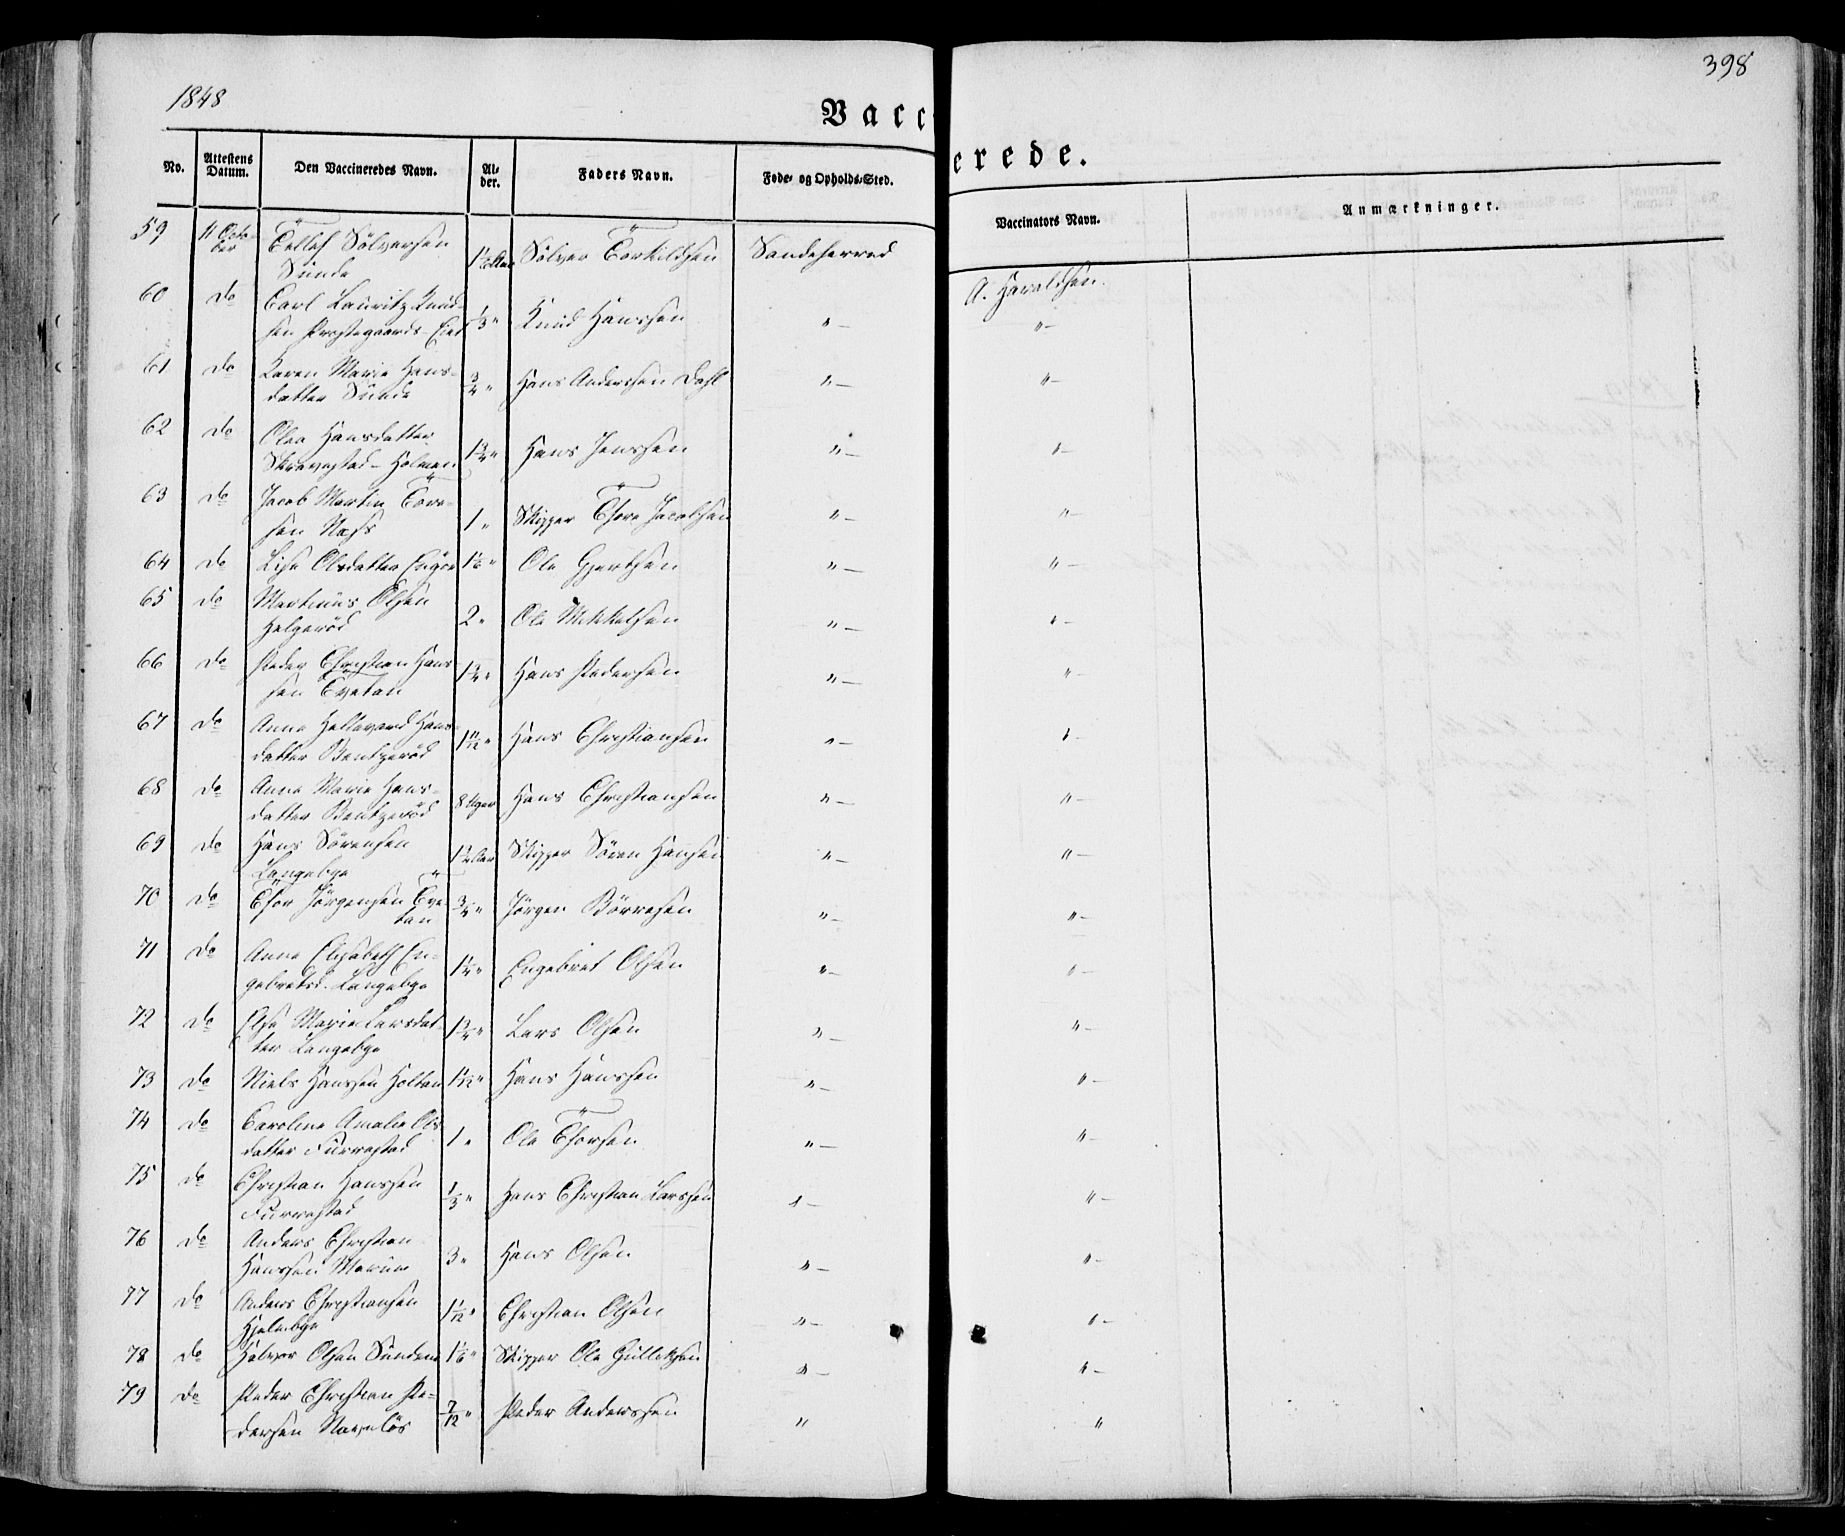 1848
398
Vaccinerede.
No. Attestens Datum. Den Vaccineredes Navn. Al-der. Faders Navn. Føde- og Opholds-Sted. Vaccinators Navn. Anmærkninger.
59 11 Octo-ber Tellef Sölversen 1 Aar Sölver Torkildsen Sandeherred A. Haraldsen.
Sunde
60 do Carl Lauritz Knud-
sen Prestegaards-Eiet 1/3 " Knud Hanssen " — " —
61 do Karen Marie Hans-
datter Sunde 3/4 " Hans Anderssen Dahl " — " —
62 do Olea Hansdatter
Skravestad-Holmen 1 3/4 " Hans Jenssen " — " —
63 do Jacob Martin Tore-
sen Næss 1 " Skipper Thore Jacobsen " — " —
64 do Lise Olsdatter 1 1/6 " Ole Gjertsen " — " —
65 do Martinus Olsen
Helgeröd 2 " Ole Mikkelsen " — " —
66 do Peder Christian Hans-
sen Tveten 1 3/4 " Hans Pedersen " — " —
67 do Anne Helleverd Hans-
datter Bentzeröd 1 11/12 " Hans Christiansen " — " —
68 do Anne Marie Hans-
datter Bentzeröd 8 Uger Hans Christiansen " — " —
69 do Hans Sörensen
Langebye 1 1/2 Aar Skipper Sören Hansen " — " —
70 do Thor Jörgensen Tve-
ten 3/4 " Jörgen Börresen " — " —
71 do Anne Elisabeth En-
gebretsd. Langebye 1 1/4 " Engebret Olsen " — " —
72 do Else Marie Larsdat-
ter Langebye 1 3/4 " Lars Olsen " — " —
73 do Niels Hanssen Holtan 1 1/12 " Hans Hanssen " — " —
74 do Caroline Amalie Ols-
datter Furrestad 1 " Ole Thorsen " — " —
75 do Christian Hanssen
Furrestad 1/3 " Hans Christian Larssen " — " —
76 do Anders Christian
Hanssen Marum 3 " Hans Olsen " — " —
77 do Anders Christiansen
Hjelmbye 1 1/12 " Christian Olsen " — " —
78 do Halvor Olsen Sundene 1 1/6 " Skipper Ole Gulliksen " — " —
79 do Peder Christian Pe-
dersen Navnlös 7/12 " Peder Anderssen " "